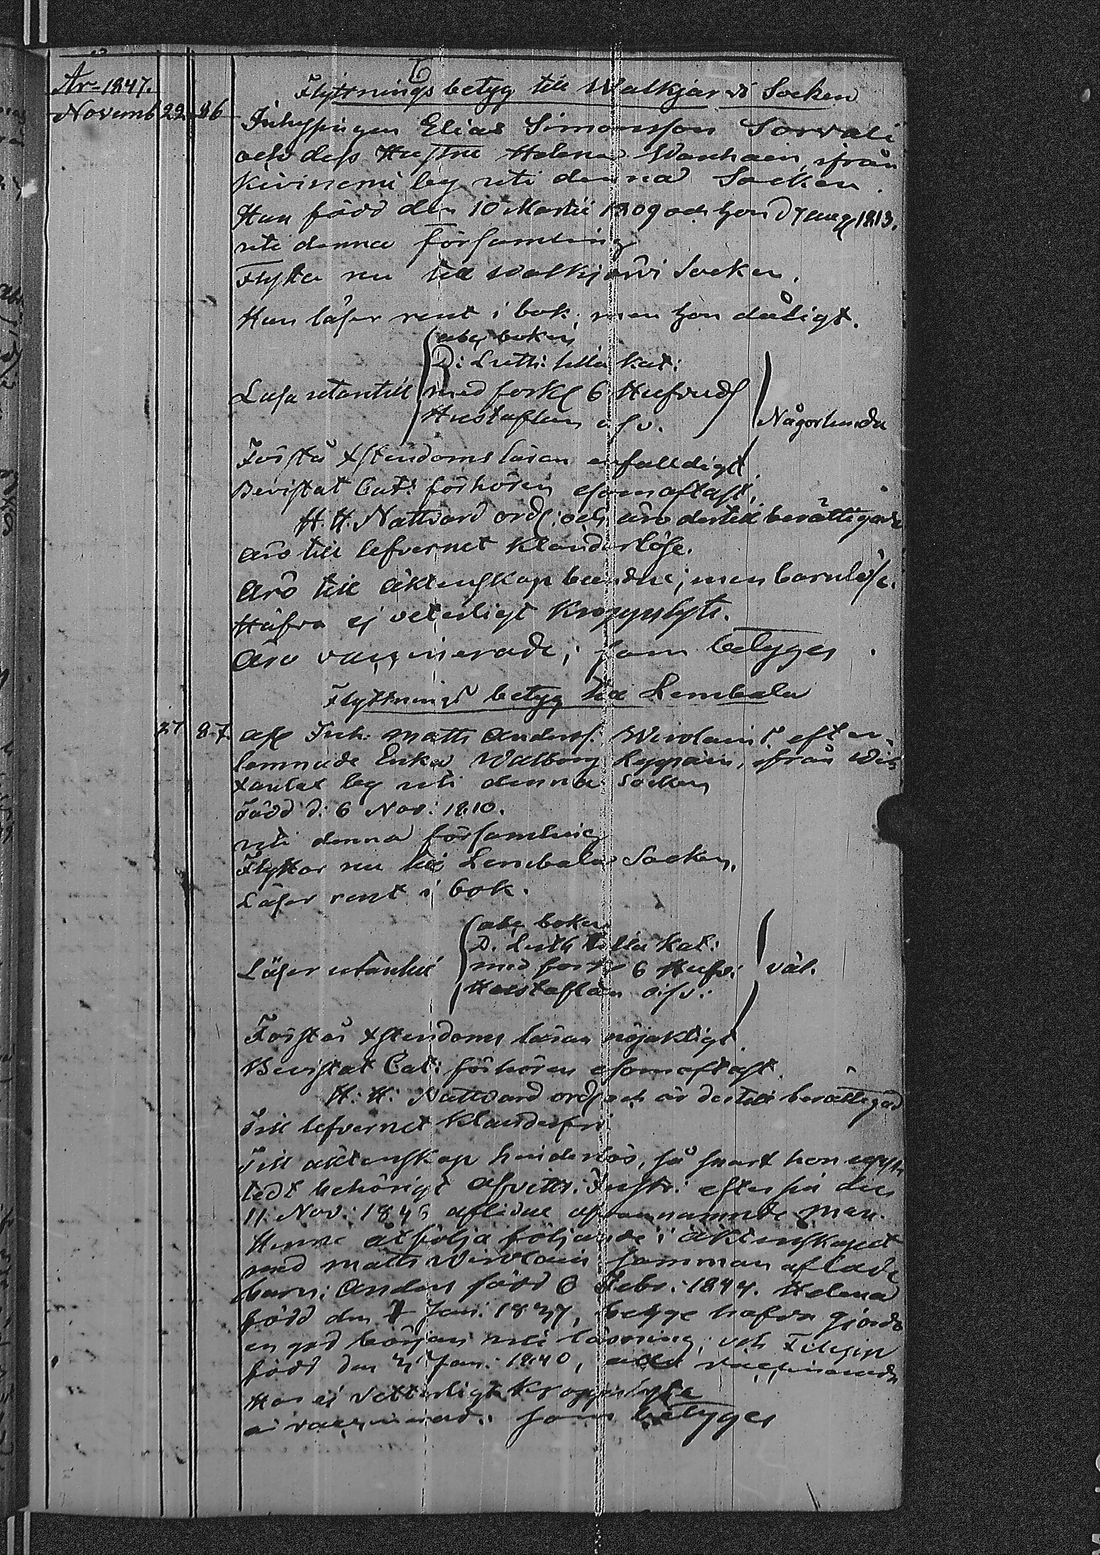 År 1847.
Flyttnings betyg till Walkjärvi Socken
Novemb 22 86
Inhysingen Elias Simonsson Sorvali
och dess Hustru Helena Wanhain, ifrån
Kivinemi by uti denna Socken.
Han född den 10 Martii 1809 och hon d 7 Aug 1813.
uti denna församling
Flytta nu till Walkjärvi Socken.
Han läser rent i bok, men hon dåligt.
abc boken
D: Luth: lilla Kat:
Läsa utantill med förkl 6 Hufvuds
Hustaflan o s v. Någorlunda
Förstå Xstendoms läran enfalldigt
Bevistat Cat: förhören esomoftast,
H. H. Nattvard ords: och äro dertill berättigade
äro till lefvernet Klanderlöse.
Äro till äktenskap bundne; men barnlöse.
Häfva ej veterligt Kroppslyte.
Äro vaccinerade; som betyges
Flyttnings betyg till Lembala
27 87 afl Inh: Matts Anders. Wirolain s. efter-
lemnade Enka Walborg, ifrån
by uti denna Socken
född d: 6 Nov: 1810.
uti denna församling
Flyttar nu till Lembala Socken,
Läser rent i bok.
abc boken
D. Luth lilla Kat:
Läser utantill med förkl 6 Hufv: väl.
Hustaflan o.s.v.:
Förstår Xstendoms läran nöjaktligt
Bevistat Cat: förhören esomoftast.
H. H. Nattvard ords och är dertill berättigad
Till lefvernet Klanderfri
Till äktenskap hinderlös, så snart hon
tedt behörigt Afvittr: Instr: efter sin den
11 Nov: 1846 aflidne ofvannämnde man
Henne åtfölja följande i äktenskapet
med Matts Wirolain samman aflade
barn: Anders född 6 Febr: 1844. Helena
född den 7 Jan: 1837, begge hafva gjordt
en god början uti läsning, och Filipp
född den 21 Jan: 1840, alla vaccinerade
Har ej vetterligt Kroppslyte
är vaccinerad: som betyges